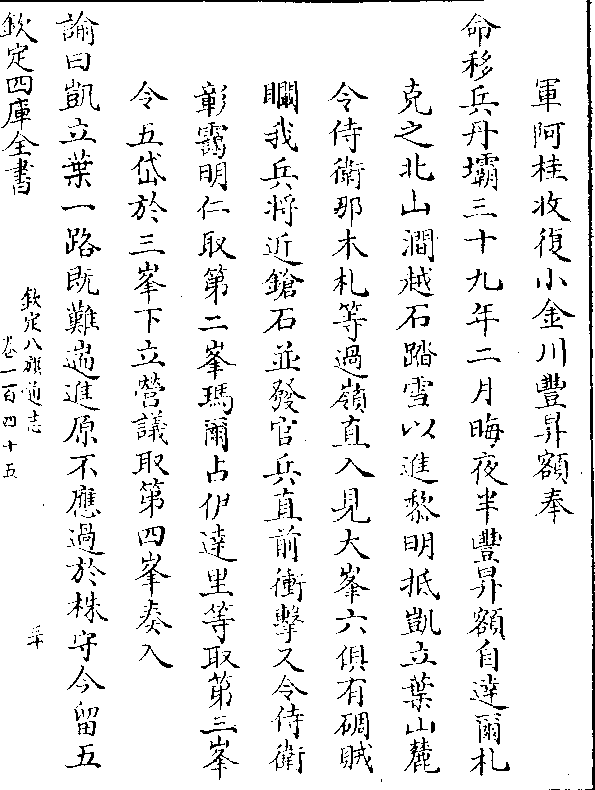 軍阿桂收復小金川豐昇額奉
命移兵丹壩三十九年二月晦夜半豐昇額自達爾札
克之北山澗越石踏雪以進黎明抵凱立葉山麓
令侍衛那木札等過嶺直入見大峯六俱有碉賊
瞯我兵將近鎗石並發官兵直前衝擊又令侍衛
彰靄明仁取第二峯瑪爾占伊達里等取第三峯
令五岱於三峯下立營議取第四峯奏入
諭曰凱立葉一路既難遄進原不應過於株守今留五
欽定四庫全書
欽定八旗通志
卷一百四十五